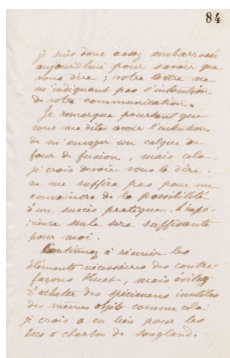 84
je suis donc assez embarrassé
aujourd'hui pour savoir que
vous dire ; votre lettre ne
m'indiquant pas l'intention
de votre communication.
Je remarque pourtant que
vous me dites avoir l'intention
de m'envoyer un calque de
four de fusion, mais cela
je crois devoir vous le dire,
ne me suffira pas pour me
convaincre de la possibilité
d'un succès pratique. L'expé-
rience seule sera suffisante
pour moi.
Continuez à réunir les
éléments nécessaires des contre-
façons mais évitez
d'acheter des spécimens inutiles
des mêmes objets comme cela
je crois a eu lieu pour les
becs à charbon de